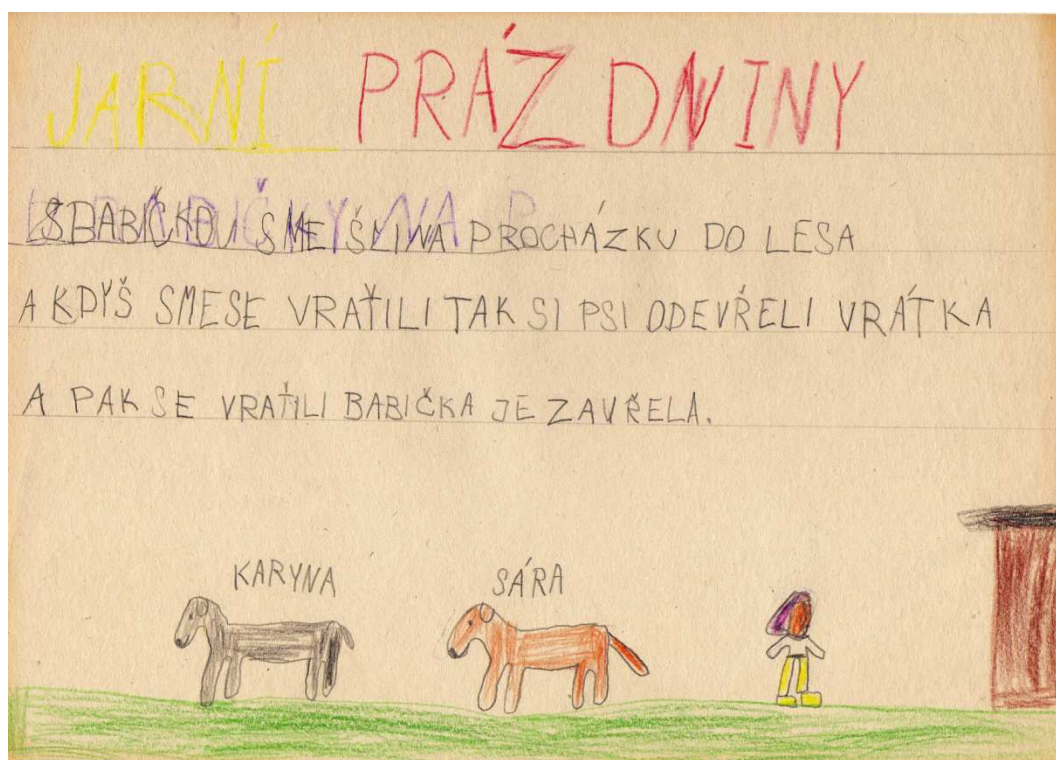 JARNÍ PRÁZDNINY
SBABIČKOU SME ŠLI NA PROCHÁZKU DO LESA
A KDYŠ SMESE VRAŤILI TAK SI PSI ODEVŘELI VRÁTKA
A PAK SE VRAŤILI BABIČKA JE ZAVŘELA.
KARYNA SÁRA